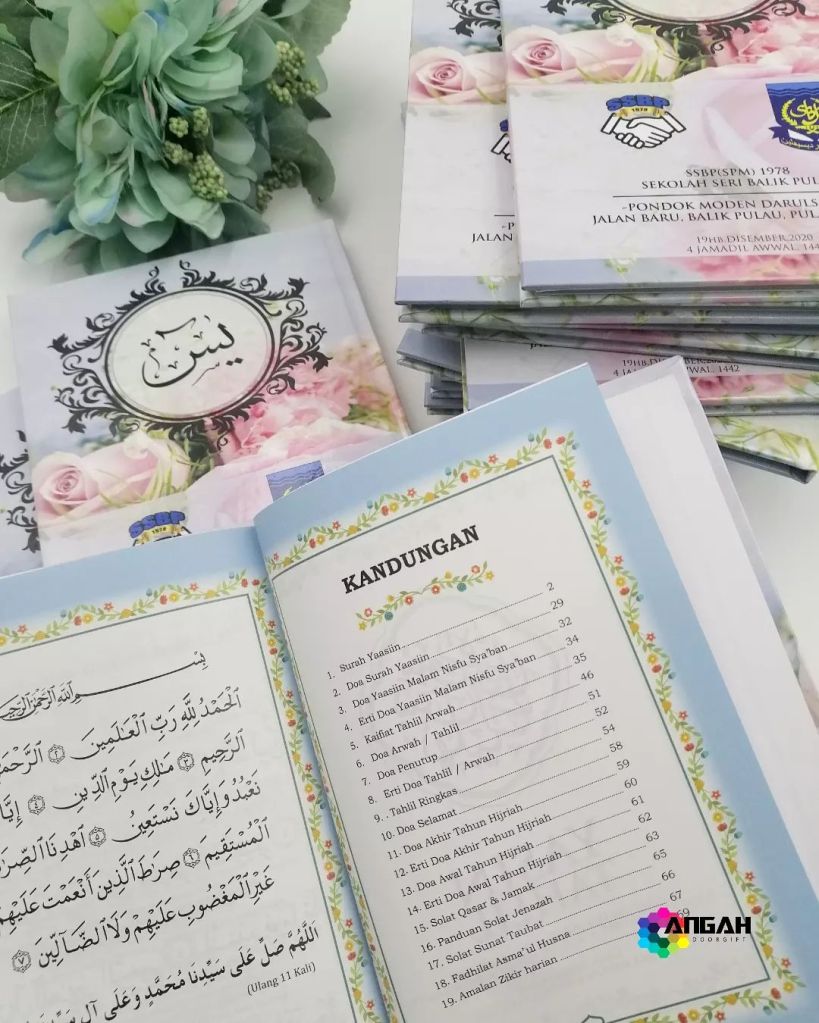 SSBP
1978
SSBP(SPM) 1978
SEKOLAH SERI BALIK
-PONDOK MODEN
JALAN BARU, BALIK PULAU,
19HB.DISEMBER,2020
4 JAMADIL AWWAL,
JALAN
19HB.DISEMBER,
4 JAMADIL AWWAL, 1442
يس
SSBP
1978
KANDUNGAN
1. Surah Yaasiin 2
2. Doa Surah Yaasiin 29
3. Doa Yaasiin Malam Nisfu Sya'ban 32
4. Erti Doa Yaasiin Malam Nisfu Sya'ban 34
5. Kaifiat Tahlil Arwah 35
6. Doa Arwah / Tahlil 46
7. Doa Penutup 51
8. Erti Doa Tahlil / Arwah 52
9. . Tahlil Ringkas 54
10. Doa Selamat 58
11. Doa Akhir Tahun Hijriah 59
12. Erti Doa Akhir Tahun Hijriah 60
13. Doa Awal Tahun Hijriah 61
14. Erti Doa Awal Tahun Hijriah 62
15. Solat Qasar & Jamak 63
16. Panduan Solat Jenazah 65
17. Solat Sunat Taubat 66
18. Fadhilat Asma'ul Husna 67
19. Amalan Zikir harian 69
بِسْمِ اللَّهِ الرَّحْمَٰنِ
الْحَمْدُ لِلَّهِ رَبِّ الْعَالَمِينَ ۝٢
الرَّحِيمِ ۝٣ مَالِكِ يَوْمِ الدِّينِ ۝٤
نَعْبُدُ وَإِيَّاكَ نَسْتَعِينُ ۝٥ اهْدِنَا
الْمُسْتَقِيمَ ۝٦ صِرَاطَ الَّذِينَ أَنْعَمْتَ عَلَيْهِمْ
غَيْرِ الْمَغْضُوبِ عَلَيْهِمْ وَلَا الضَّالِّينَ ۝٧
اللَّهُمَّ صَلِّ عَلَى سَيِّدِنَا مُحَمَّدٍ وَعَلَى آلِ
(Ulang 11 Kali)
ANGAH
DOORGIFT